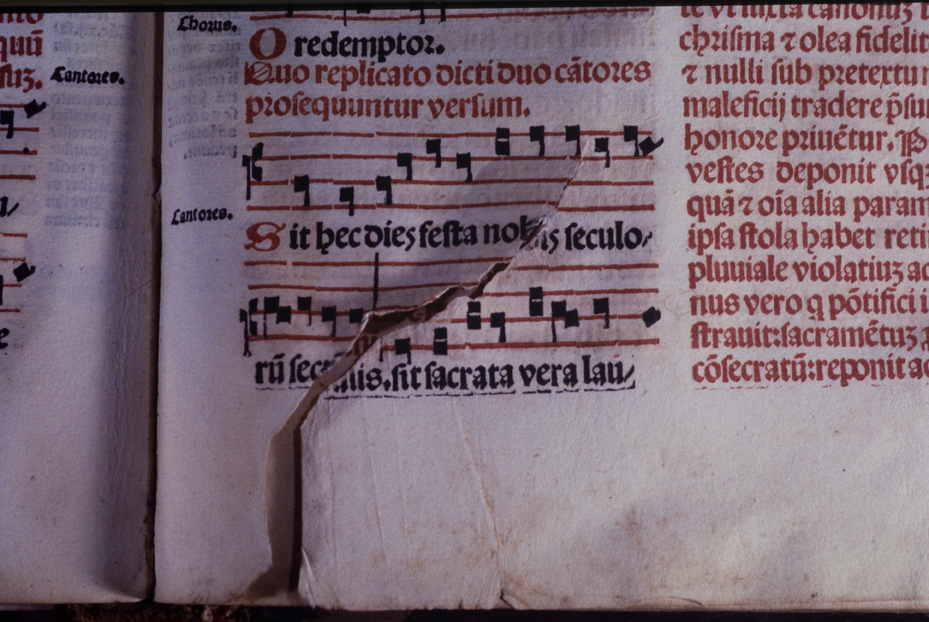 quū
Cantores.
Chorus.
O redemptor.
Quo replicato dicti duo cātores
prosequuntur versum.
Cantores.
Sit hec dies festa nobis seculo/
rū seculis. sit sacrata vera lau/
chrisma ⁊ olea fidelit
⁊ nulli sub pretextu
maleficij tradere p̄su
honore priuētur.
vestes deponit vsq
quā ⁊ oīa alia param
ipsa stola habet reti
pluuiale violatiuʒ ac
nus vero q pōtifici i
strauit:sacramētuʒ
cōsecratū:reponit ac